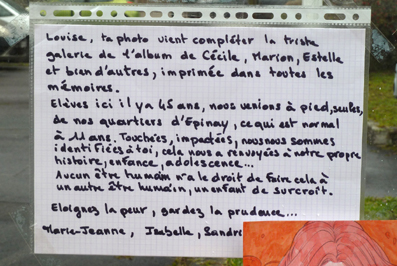 Louise, ta photo vient compléter la triste
galerie de l'album de Cécile, Marion, Estelle
et bien d'autres, imprimée dans toutes les
mémoires.
Elèves ici il y a 45 ans, nous venions à pied, seules,
de nos quartiers d'Epinay, ce qui est normal
à 11 ans. Touchées, impactées, nous nous sommes
identifiées à toi, cela nous a renvoyées à notre propre
histoire, enfance, adolescence...
Aucun être humain n'a le droit de faire cela à
un autre être humain, un enfant de surcroît.
Eloignez la peur, gardez la prudence...
Marie-Jeanne, Isabelle, Sandr